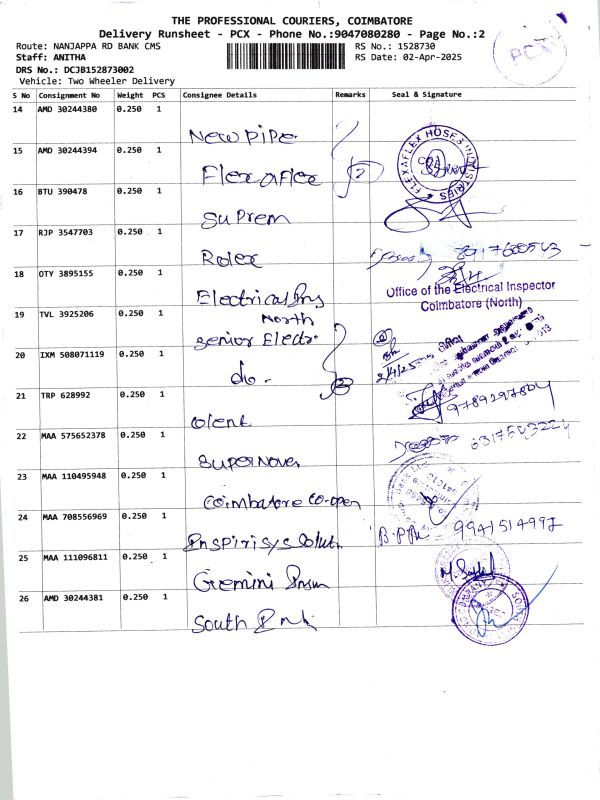 THE PROFESSIONAL COURIERS, COIMBATORE
Delivery Runsheet - PCX - Phone No.:9047080280 - Page No.:2
Route: NANJAPPA RD BANK CMS
RS No.: 1528730
Staff: ANITHA
RS Date: 02-Apr-2025
DRS No.: DCJB152873002
Vehicle: Two Wheeler Delivery
PCX
S No Consignment No Weight PCS Consignee Details Remarks Seal & Signature
14 AMD 30244380 0.250 1
New Pipe
15 AMD 30244394 0.250 1
Flexaflex
2
FLEXAFLEX HOSES INDUSTRIES
16 BTU 390478 0.250 1
Suprem
17 RJP 3547703 0.250 1
Rolex
18 OTY 3895155 0.250 1
Electrical Ins
North
Office of the Electrical Inspector
Coimbatore (North)
19 TVL 3925206 0.250 1
Senior Electr.
20 IXM 508071119 0.250 1
do.
2
2/4/25
21 TRP 628992 0.250 1
olent
9789297804
22 MAA 575652378 0.250 1
Supernova
23 MAA 110495948 0.250 1
Coimbatore Co-open
24 MAA 708556969 0.250 1
Inspirisys Soluti.
9941514997
25 MAA 111096811 0.250 1
Gemini
26 AMD 30244381 0.250 1
South